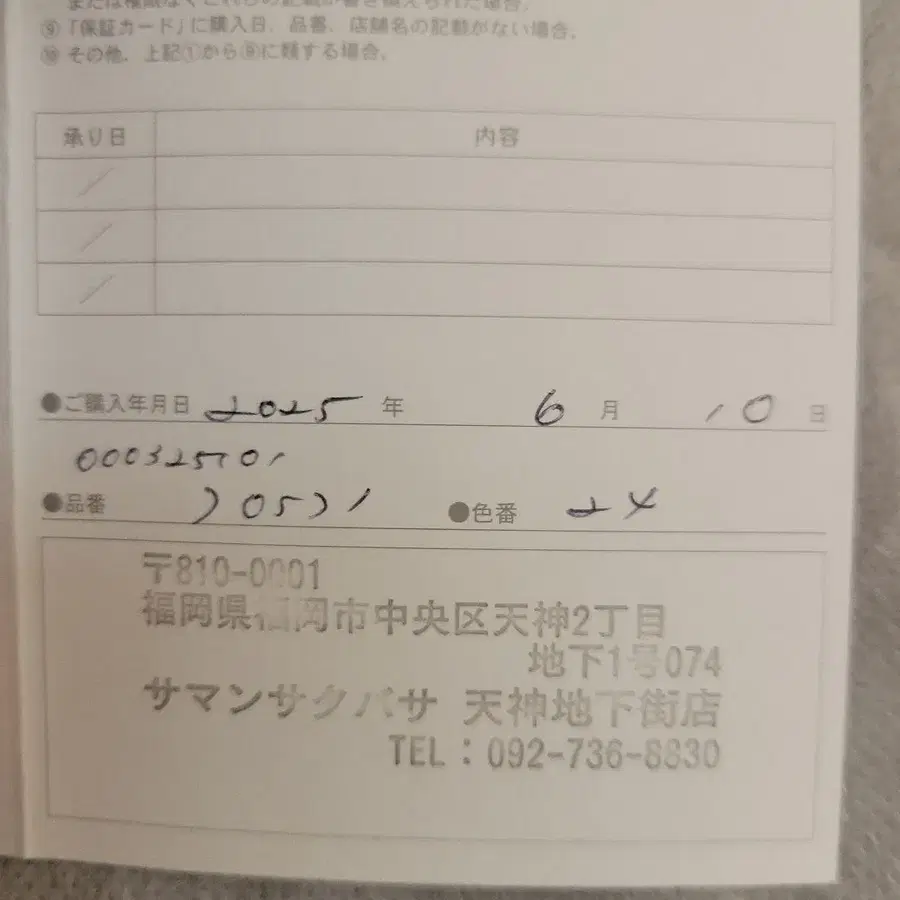 または権限なくこれらの記載が書き換えられた場合。
⑨「保証カード」に購入日、品番、店舗名の記載がない場合。
⑩ その他、上記①から⑨に類する場合。
承り日 内容
／
／
／
●ご購入年月日 2025 年 6 月 10 日
●品番 20521 ●色番 24
〒810-0001
福岡県福岡市中央区天神2丁目
地下1号074
サマンサタバサ 天神地下街店
TEL：092-736-8830